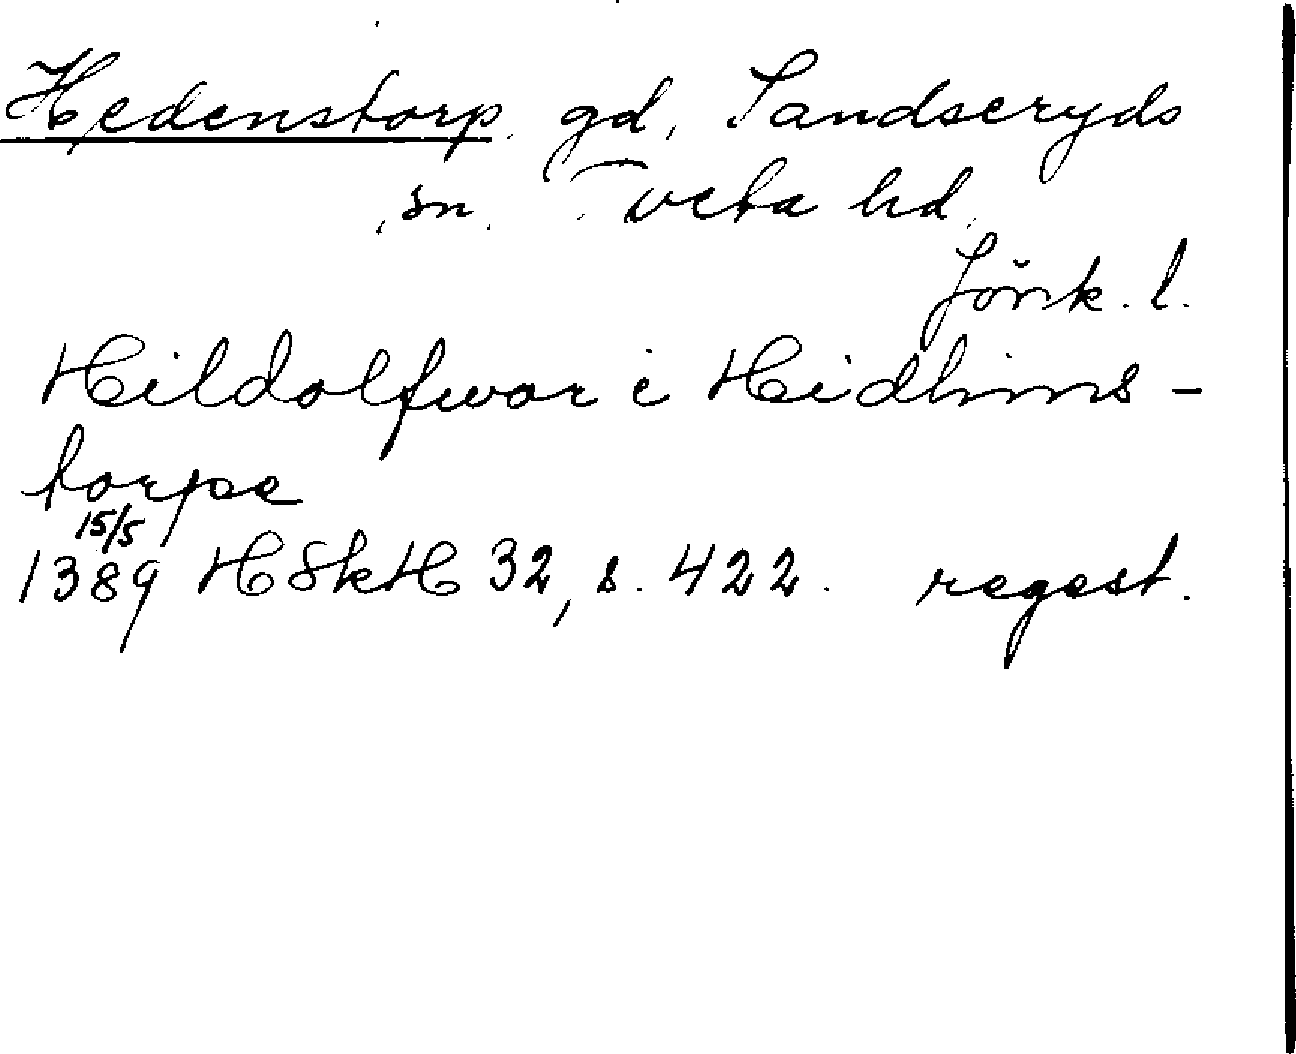 Hedenstorp. gd, Sandseryds
sn. Tveta hd.
Jönk. l.
Hildolfwar i Hidhins-
torpe
15/5
1389 HSkH 32, s. 422. regest.